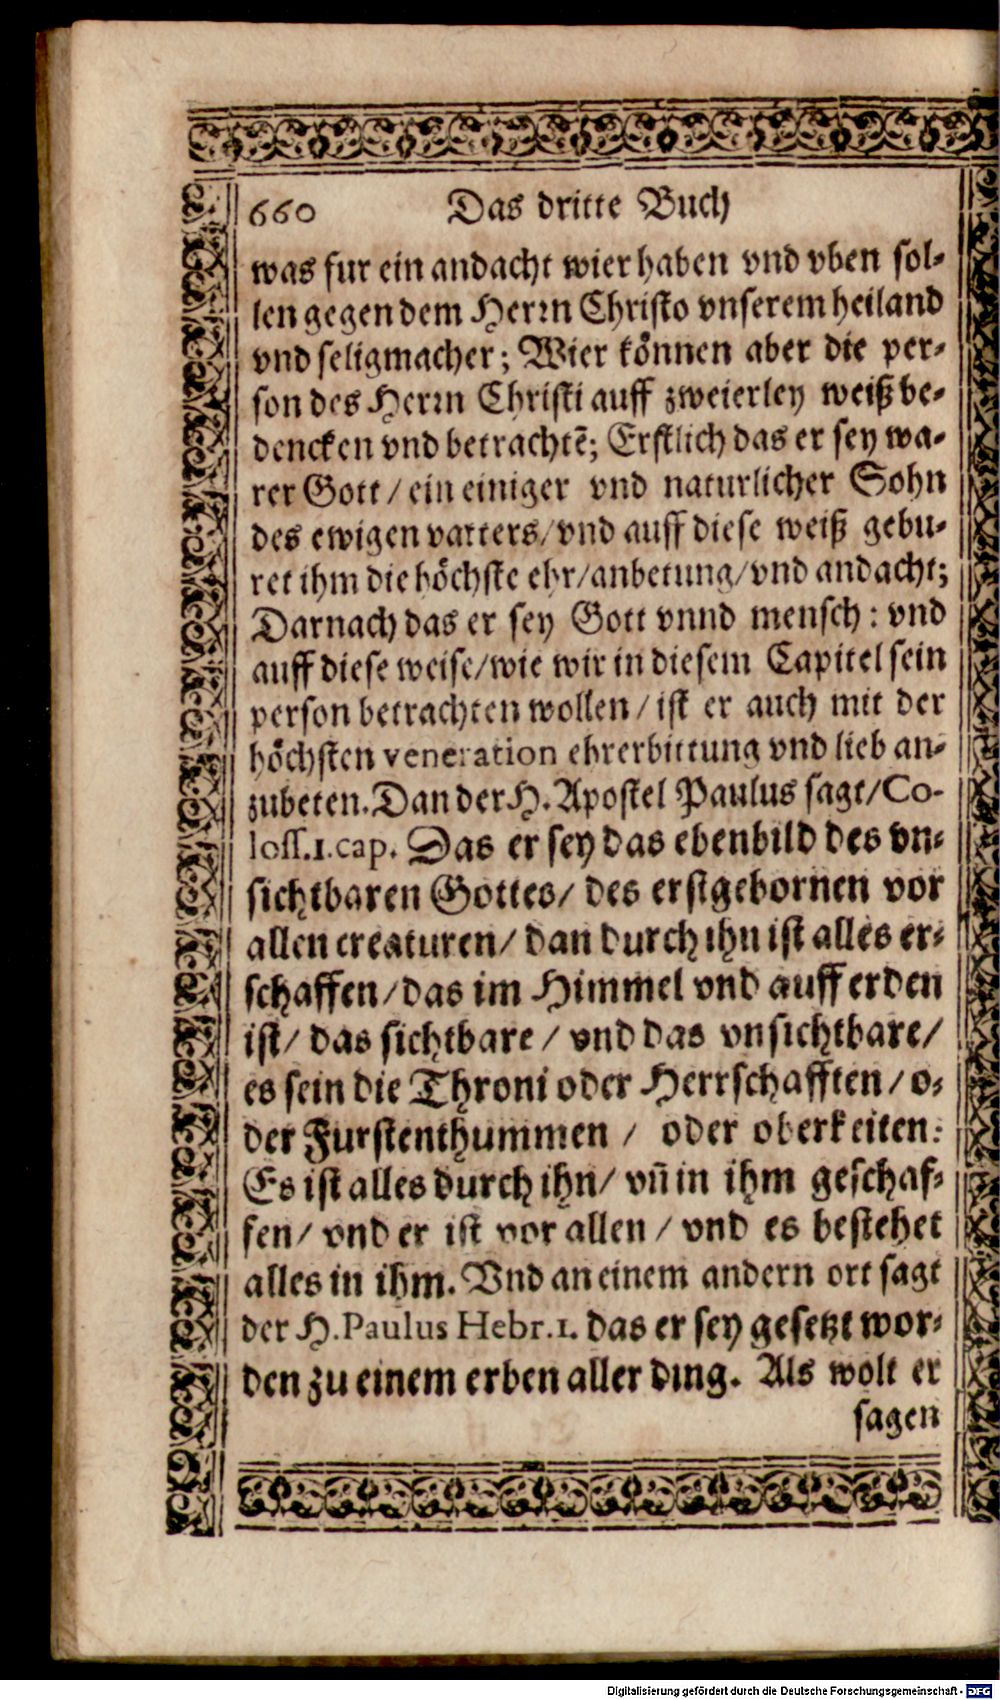 660 Das dritte Buch
was fur ein andacht wier haben vnd vben sol-
len gegen dem Herrn Christo vnserem heiland
vnd seligmacher; Wier können aber die per-
son des Herrn Christi auff zweierley weiß be-
dencken vnd betrachtē; Erstlich das er sey wa-
rer Gott/ ein einiger vnd naturlicher Sohn
des ewigen vatters/ vnd auff diese weiß gebu-
ret ihm die höchste ehr/ anbetung/ vnd andacht;
Darnach das er sey Gott vnnd mensch: vnd
auff diese weise/ wie wir in diesem Capitel sein
person betrachten wollen/ ist er auch mit der
höchsten veneration ehrerbittung vnd lieb an-
zubeten. Dan der H. Apostel Paulus sagt/ Co-
loss. 1. cap. Das er sey das ebenbild des vn-
sichtbaren Gottes/ des erstgebornen vor
allen creaturen/ dan durch ihn ist alles er-
schaffen/ das im Himmel vnd auff erden
ist/ das sichtbare / vnd das vnsichtbare/
es sein die Throni oder Herrschafften/ o-
der Furstenthummen / oder oberkeiten:
Es ist alles durch ihn/ vn̄ in ihm geschaf-
fen/ vnd er ist vor allen / vnd es bestehet
alles in ihm. Vnd an einem andern ort sagt
der H. Paulus Hebr. 1. das er sey gesetzt wor-
den zu einem erben aller ding. Als wolt er
sagen
Digitalisierung gefördert durch die Deutsche Forschungsgemeinschaft - DFG